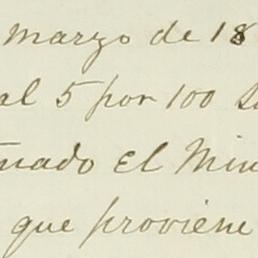 marzo de 18
al 5 por 100
nado El Min
que proviene